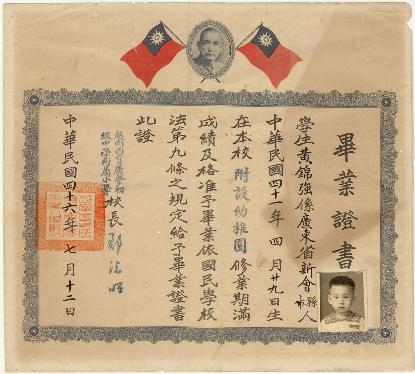 畢業證書
學生黃錦強係廣東省新會縣市人
中華民國四十一年 四 月廿九日生
在本校 附設幼稚園 修業期滿
成績及格准予畢業依國民學校
法第九條之規定給予畢業證書
此證
校長
中華民國四十六年 七 月 十二 日